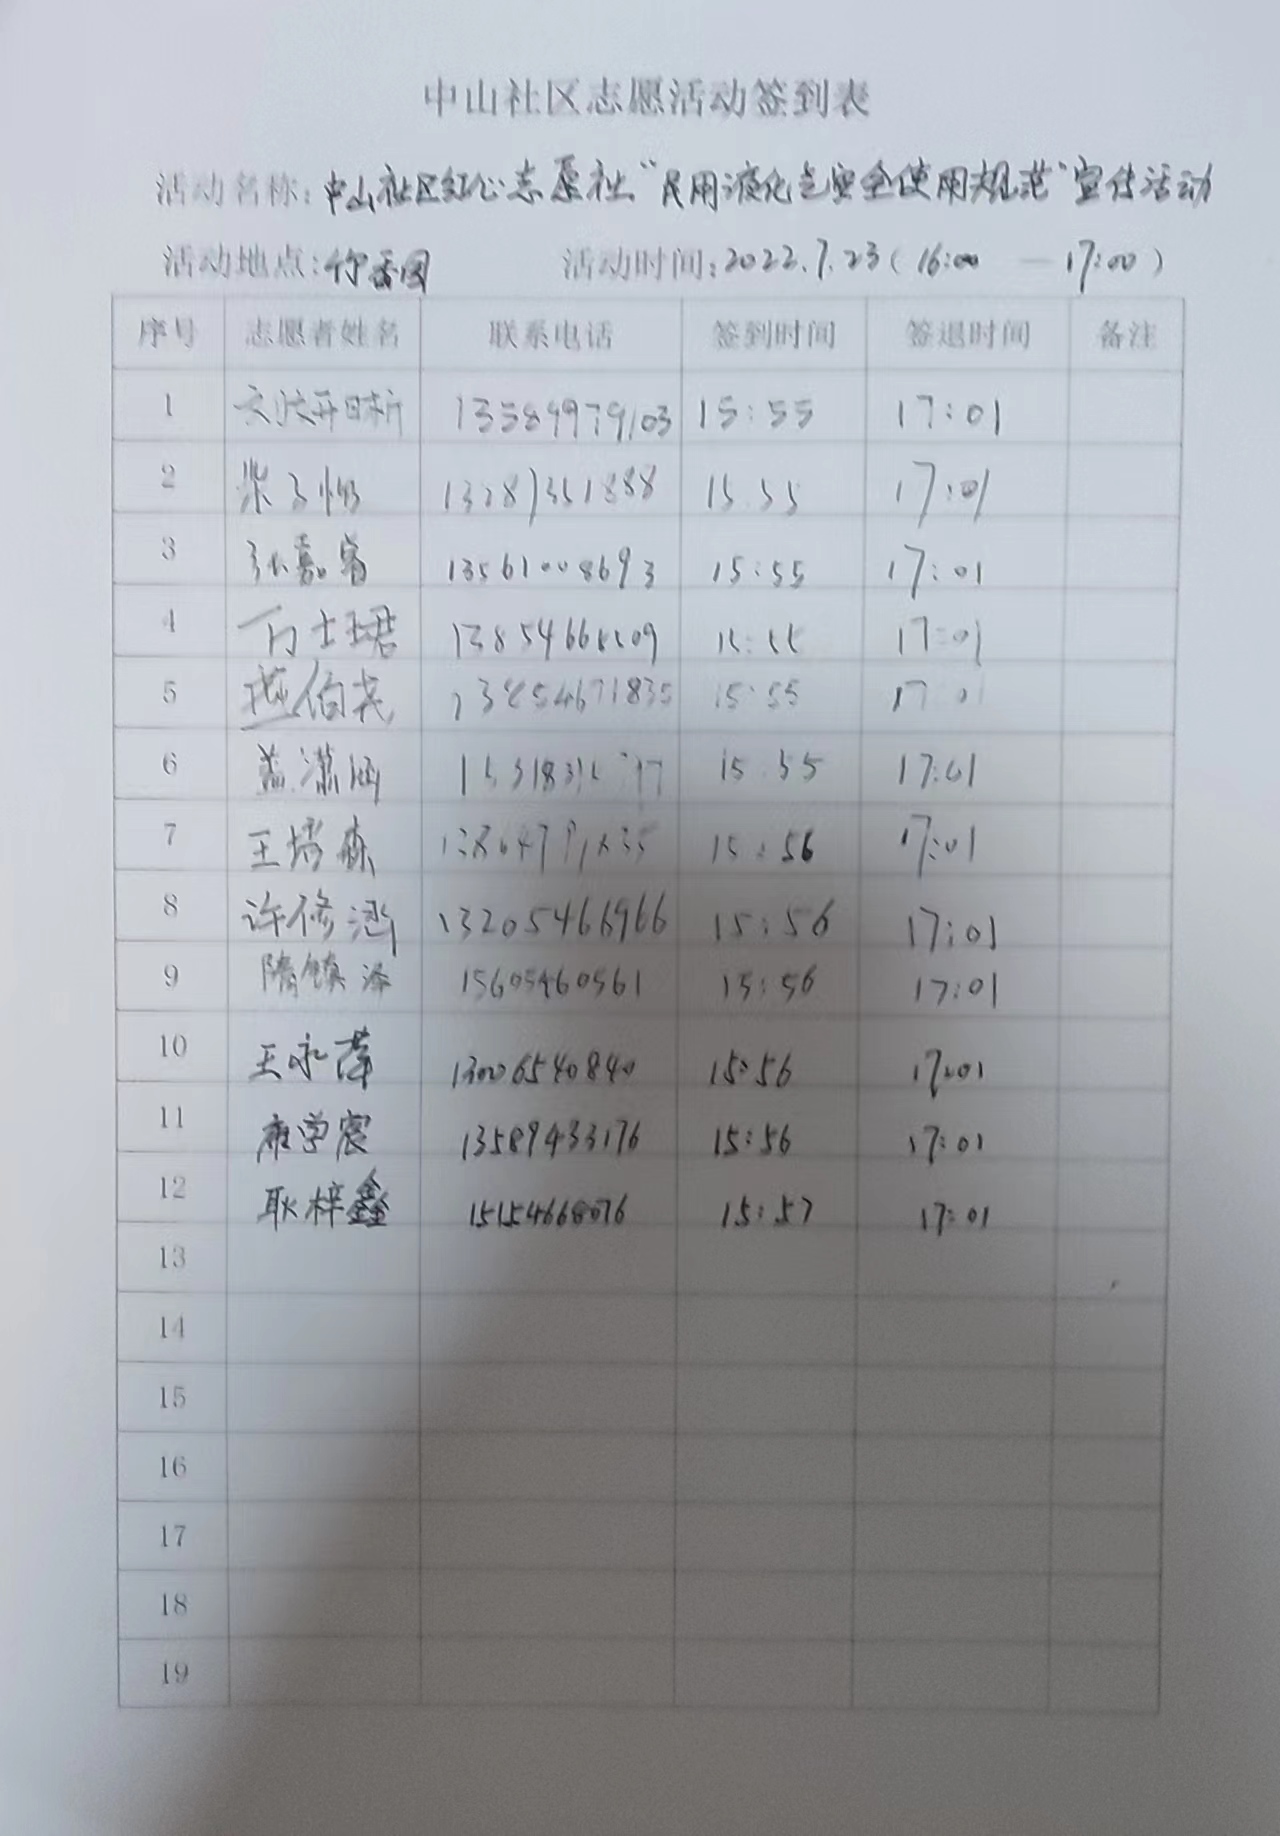 中山社区志愿活动签到表
活动名称:中山社区红心志愿社"民用液化气安全使用规范"宣传活动
活动地点: 活动时间:2022.7.23(16:00 — 17:00)
序号 志愿者姓名 联系电话 签到时间 签退时间 备注
1 13589979103 15:55 17:01
2 15.55 17:01
3 张嘉睿 13561008693 15:55 17:01
4 17:01
5 13854671835 15:55 17:01
6 盖潇涵 15.55 17:01
7 15:56 17:01
8 许修涵 13205466966 15:56 17:01
9 隋镇泽 15605460561 15:56 17:01
10 13006540840 15:56 17:01
11 13589433176 15:56 17:01
12 耿梓鑫 15154668076 15:57 17:01
13
14
15
16
17
18
19